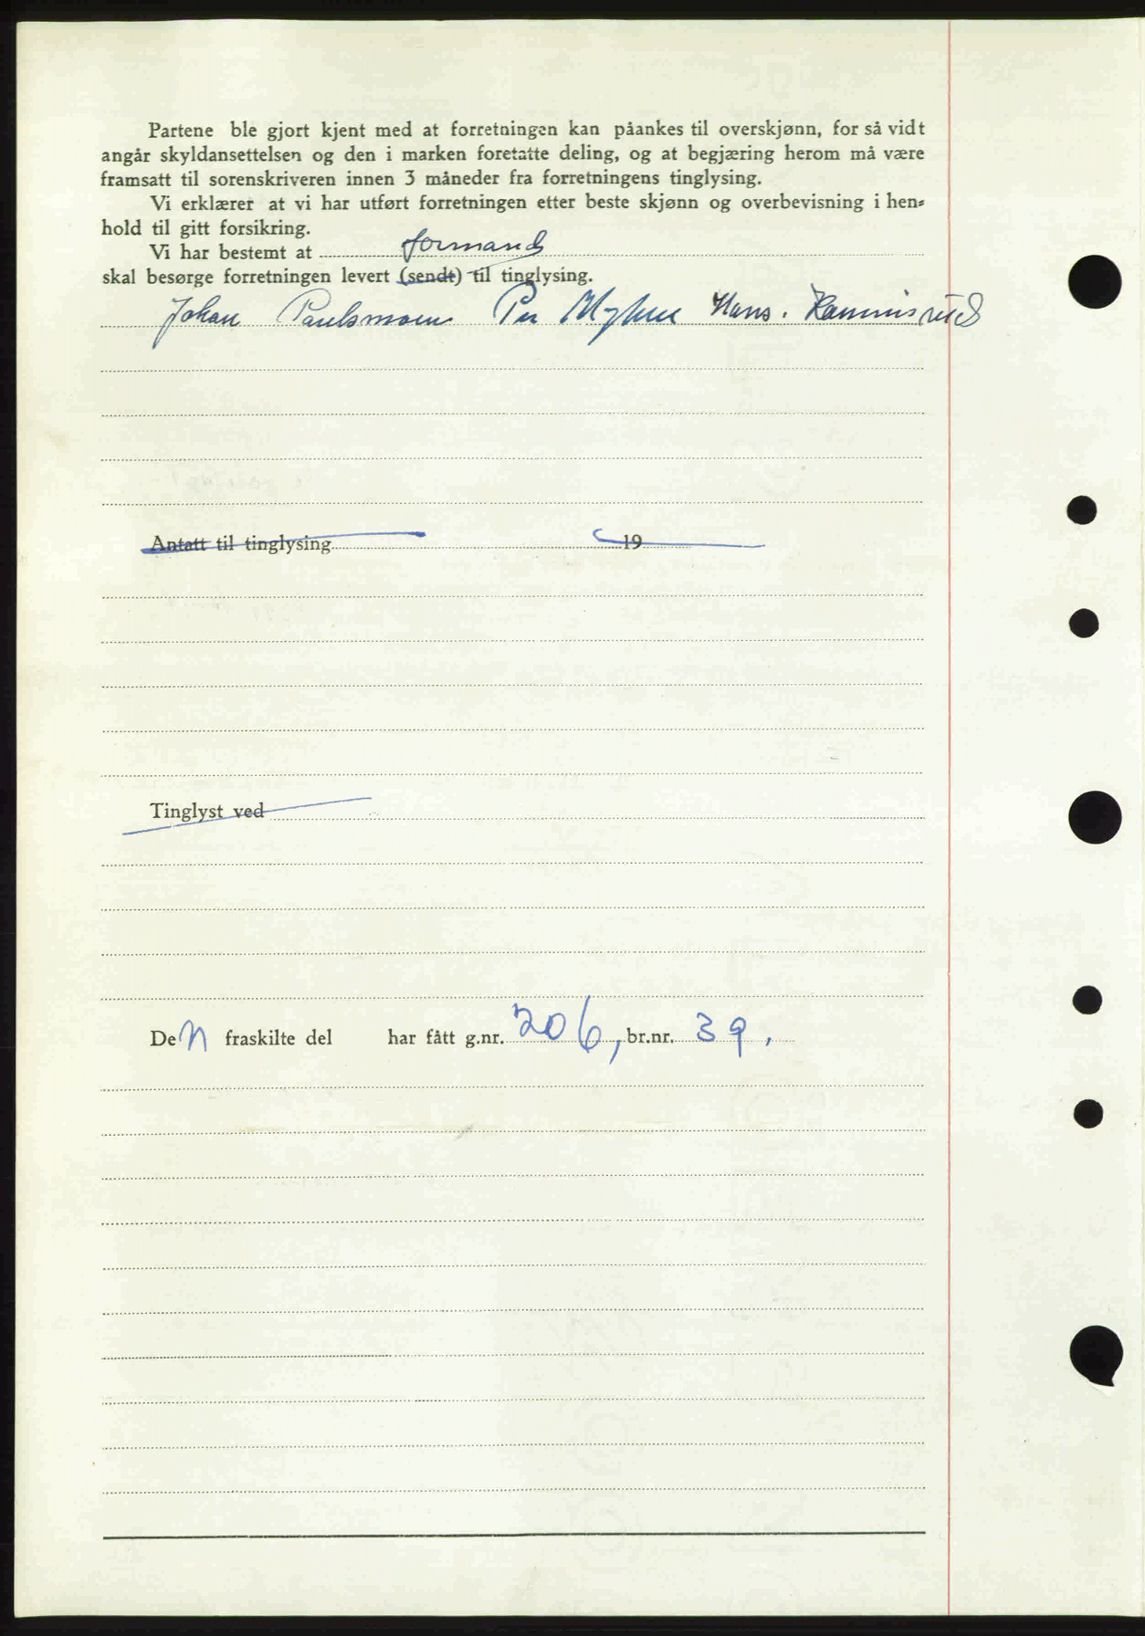 Partene ble gjort kjent med at forretningen kan påankes til overskjønn, for så vidt
angår skyldansettelsen og den i marken foretatte deling, og at begjæring herom må være
framsatt til sorenskriveren innen 3 måneder fra forretningens tinglysing.
Vi erklærer at vi har utført forretningen etter beste skjønn og overbevisning i hen-
hold til gitt forsikring.
Vi har bestemt at formand
skal besørge forretningen levert (sendt) til tinglysing.
Johan Paulsmoen Per Myhre Hans.
Antatt til tinglysing 19
Tinglyst ved
Den fraskilte del har fått g.nr. 206, br.nr. 39.